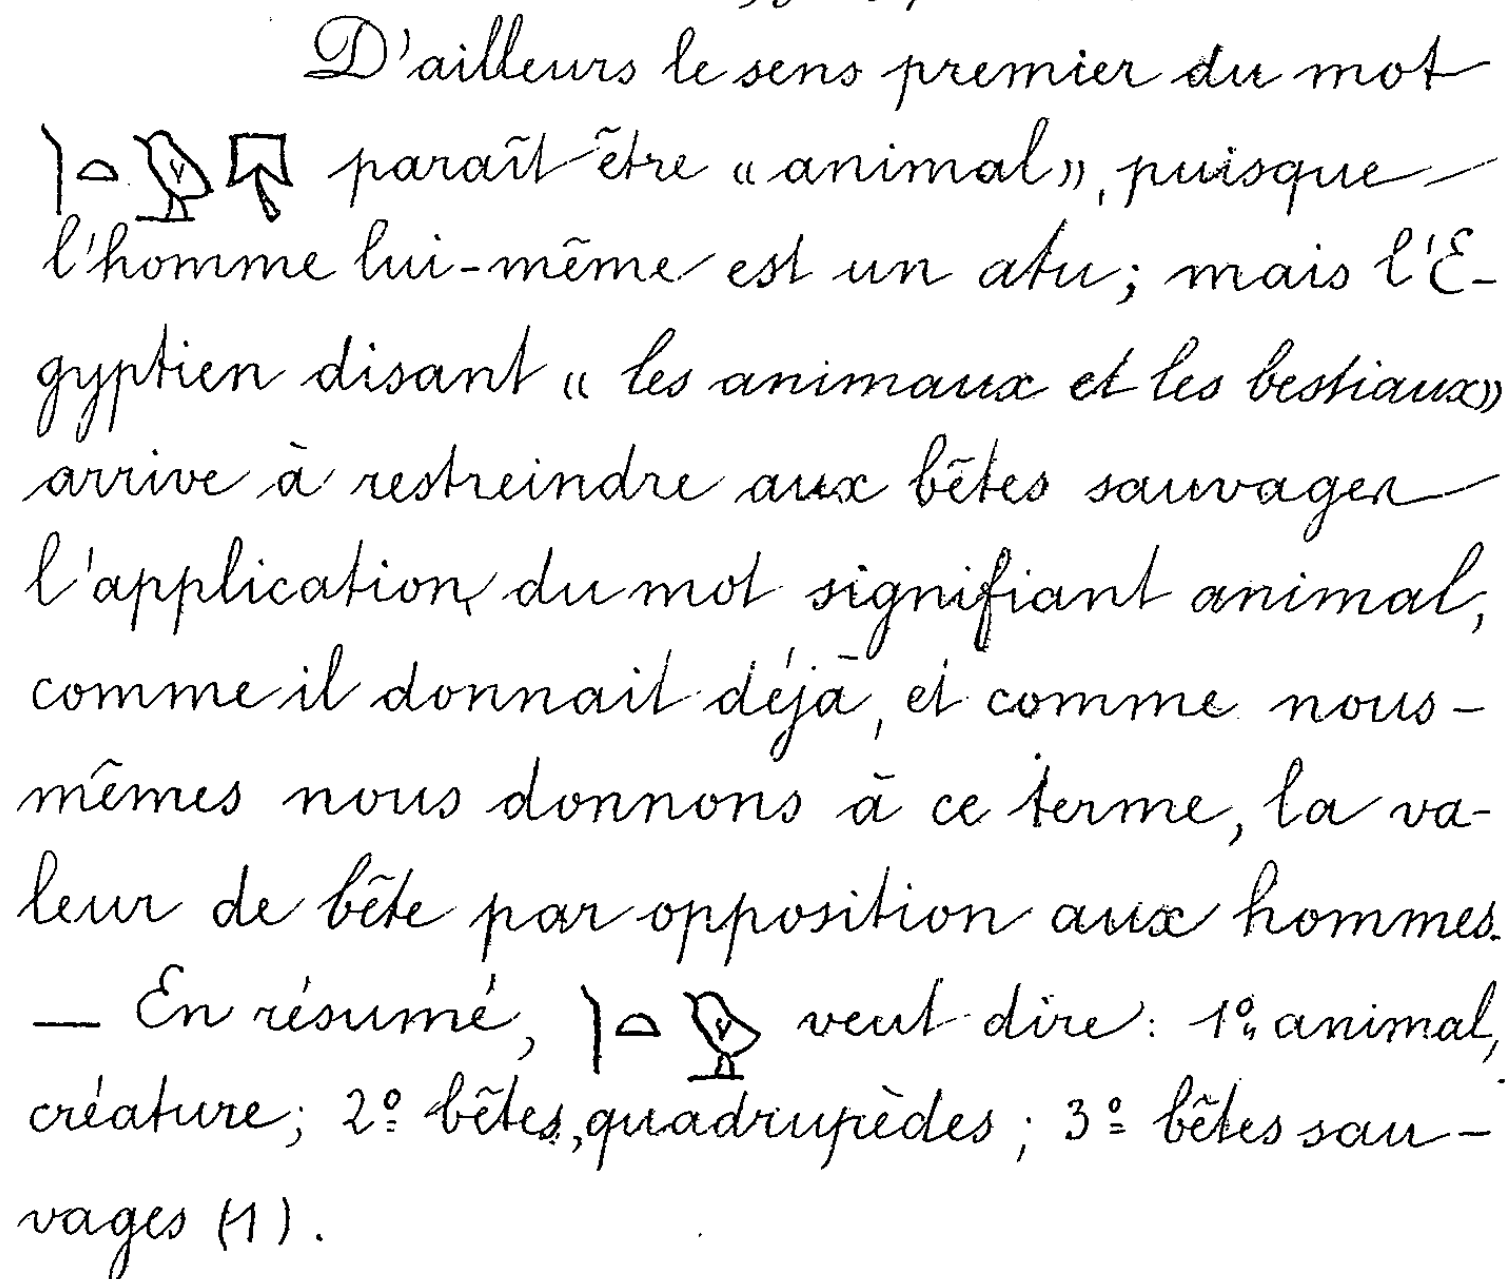 D'ailleurs le sens premier du mot
𓌙𓏏𓅱𓄛 paraît être « animal », puisque
l'homme lui-même est un atu ; mais l'É-
gyptien disant « les animaux et les bestiaux »
arrive à restreindre aux bêtes sauvages
l'application du mot signifiant animal,
comme il donnait déjà, et comme nous-
mêmes nous donnons à ce terme, la va-
leur de bête par opposition aux hommes.
— En résumé, 𓌙𓏏𓅱 veut dire : 1º animal,
créature ; 2º bêtes, quadrupèdes ; 3º bêtes sau-
vages (1).